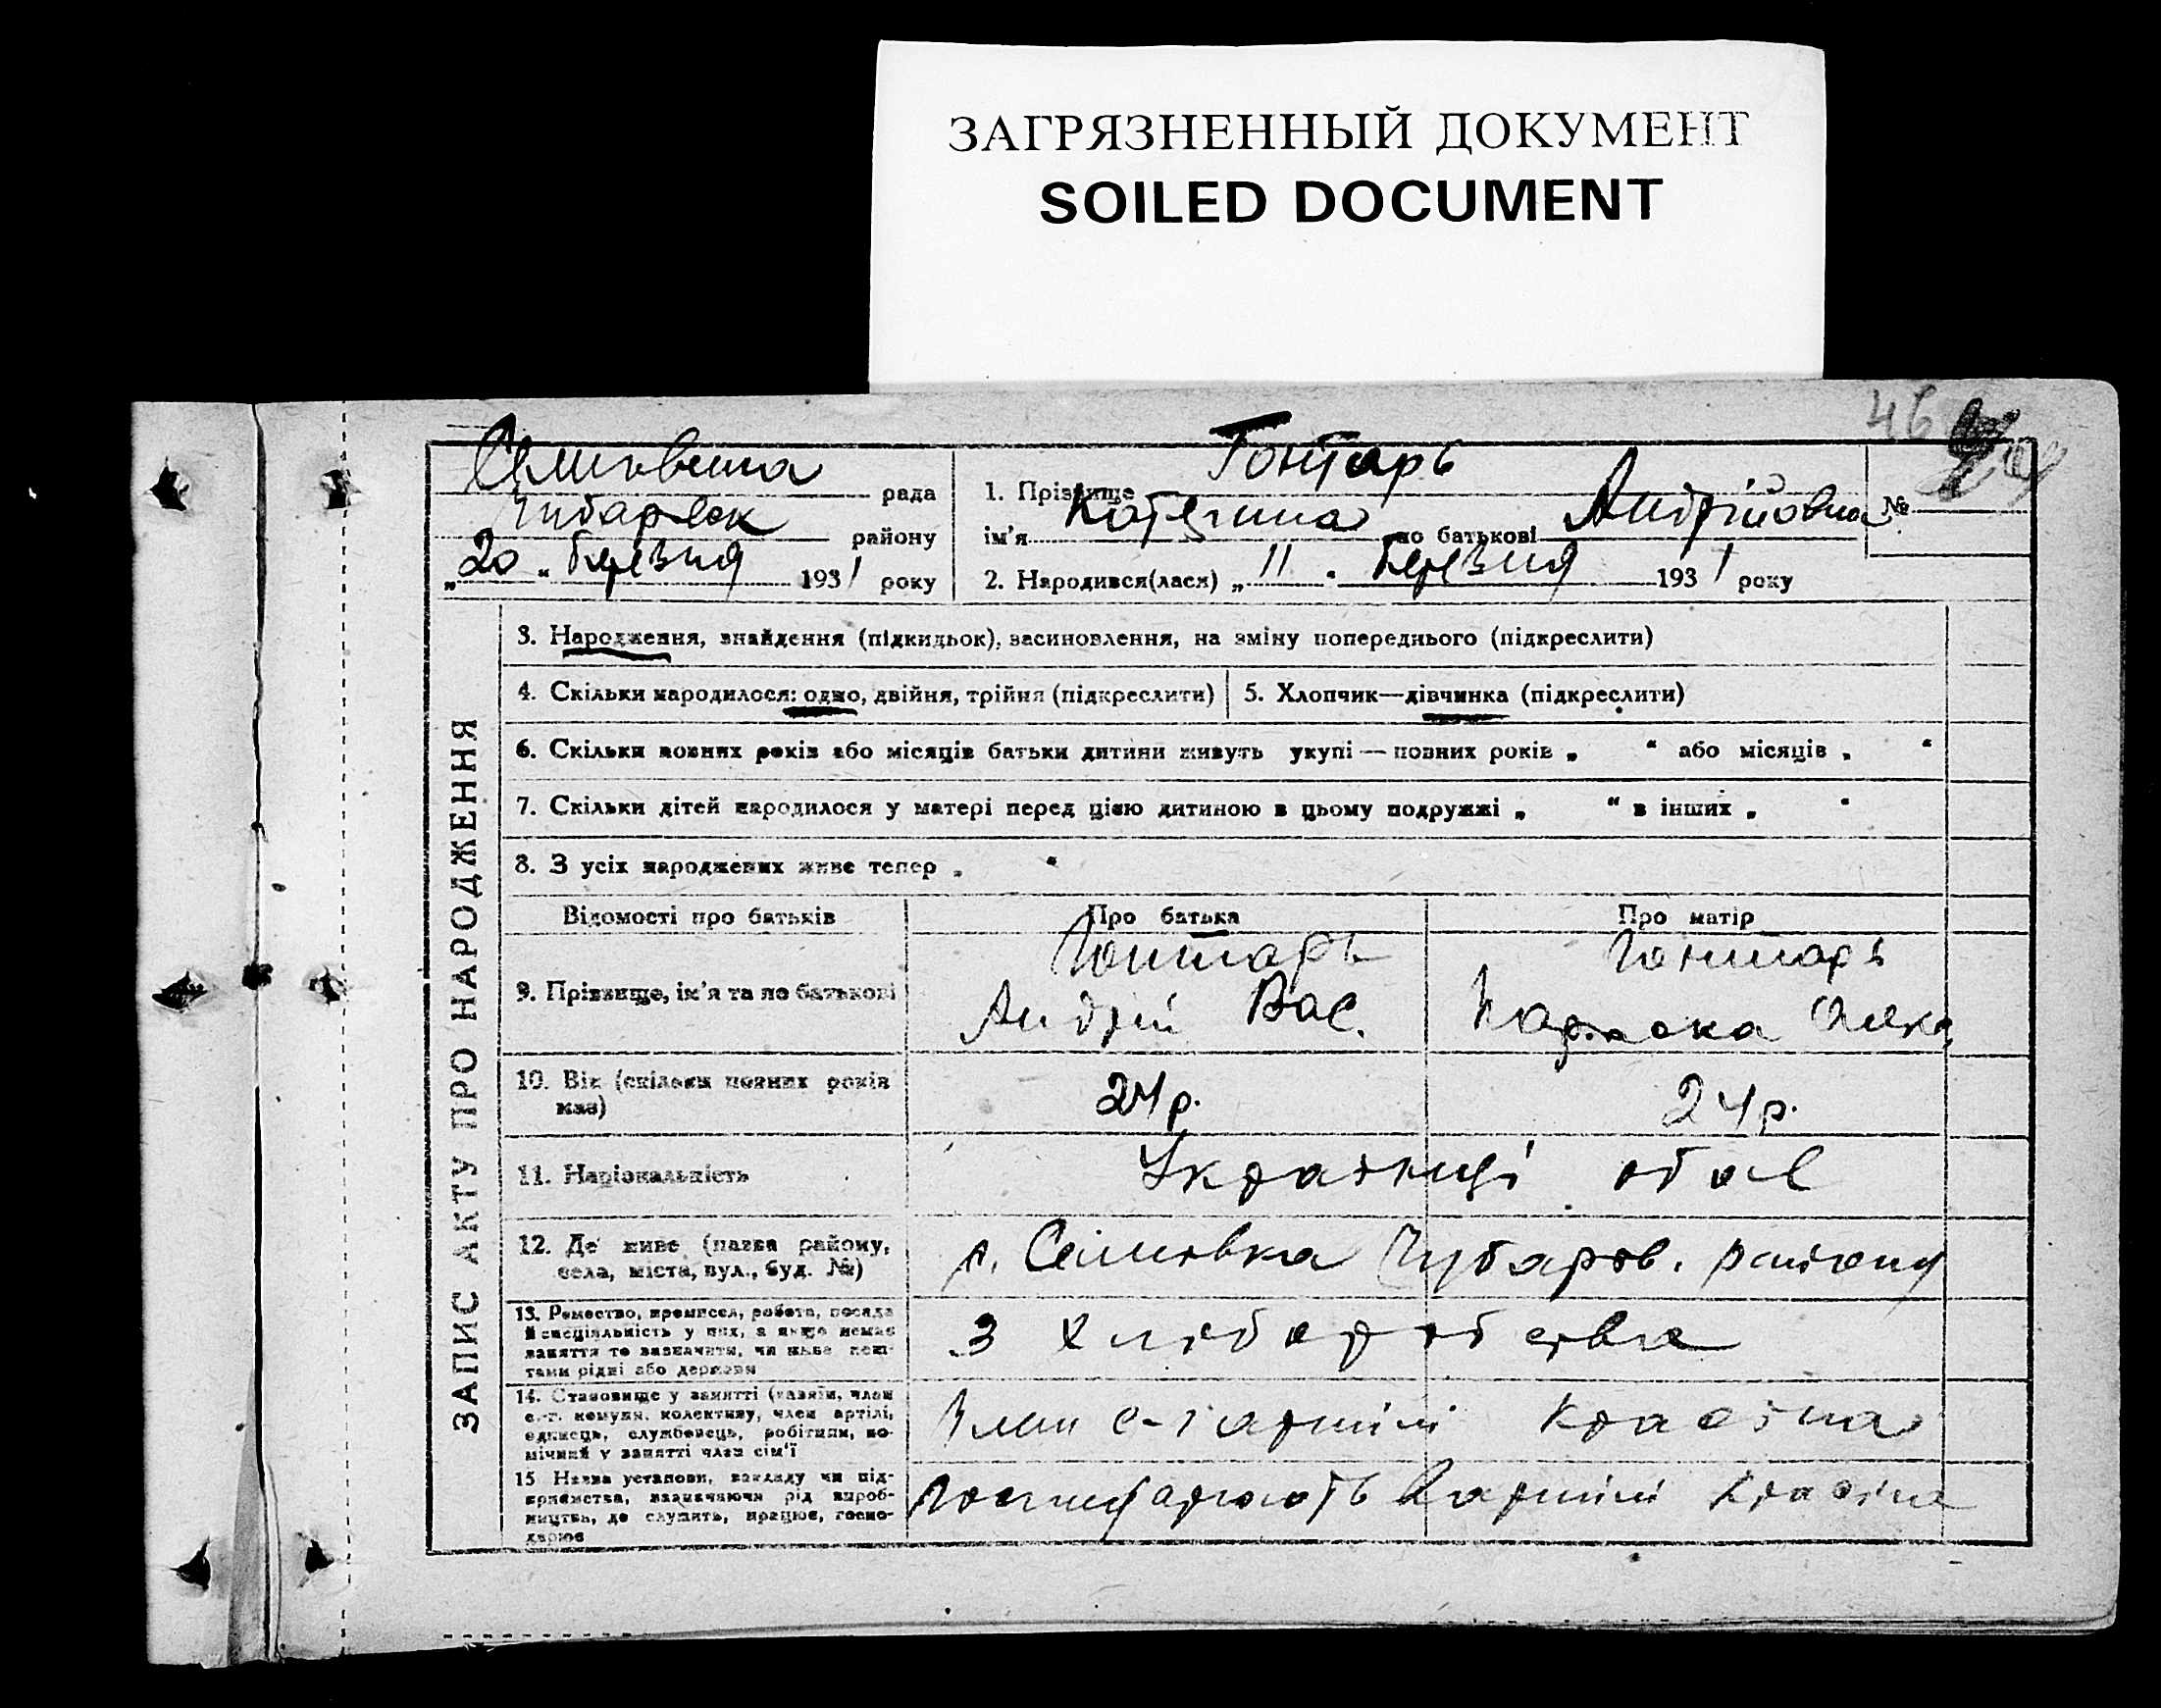 ЗАГРЯЗНЕННЫЙ ДОКУМЕНТ
SOILED DOCUMENT
46
рада
району
„20“ березня 1931 року
1. Прізвище Гонтарь
ім'я Катерина по батькові Андрійовна
№
2. Народився(лася) „11“ березня 1931 року
ЗАПИС АКТУ ПРО НАРОДЖЕННЯ
3. Народження, знайдення (підкидьок), засиновлення, на зміну попереднього (підкреслити)
4. Скільки народилося: одно, двійня, трійня (підкреслити)
5. Хлопчик—дівчинка (підкреслити)
6. Скільки повних років або місяців батьки дитини живуть укупі — повних років „ “ або місяців „ “
7. Скільки дітей народилося у матері перед цією дитиною в цьому подружжі „ “ в інших „ “
8. З усіх народжених живе тепер „ “
Відомості про батьків
Про батька
Про матір
9. Прізвище, ім'я та по батькові
Гонтарь
Андрій Вас.
Гонтарь
Параска
10. Вік (скільки повних років
має)
24 р.
24 р.
11. Національність
Українці обоє
12. Де живе (назва району,
села, міста, вул., буд. №)
с. Семовка Чубаров. району
13. Ремество, промисел, робота, посада
й спеціяльність у них, а якщо немає
заняття то зазначити, чи живе кош-
тами рідні або держави
З хліборобства
14. Становище у занятті (хазяїн, член
с.-г. комуни, колективу, член артілі,
одинець, службовець, робітник, по-
мічний у занятті член сім'ї
Член с-г артілі Красіна
15 Назва установи, закладу чи під-
приємства, зазначаючи рід вироб-
ництва, де служить, працює, госпо-
дарює
Господарюють в артілі Красіна